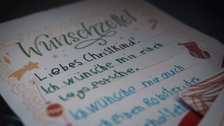 Wunschzettel
Liebes Christkind!
Ich wünsche mir ein
Lego Porsche.
Ich wünsche mir auch
einen Roboter der